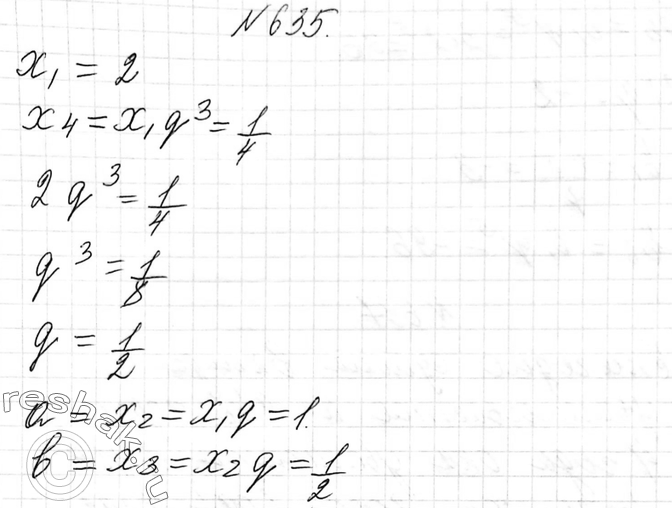 №635.
x₁ = 2
x₄ = x₁q³ = 1/4
2q³ = 1/4
q³ = 1/8
q = 1/2
a = x₂ = x₁q = 1
b = x₃ = x₂q = 1/2
reshak.ru
©